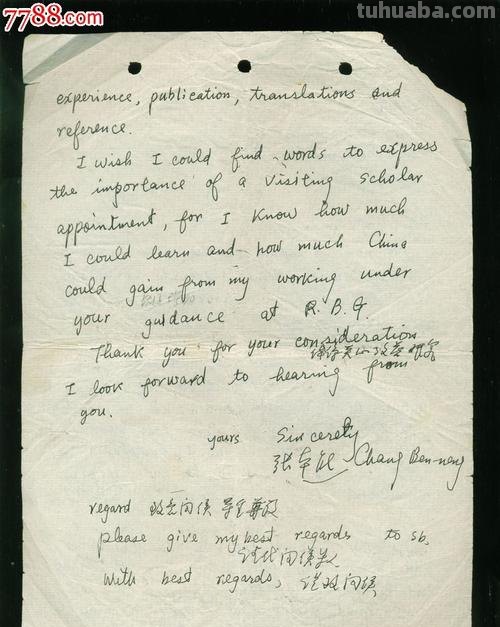 7788.com
tuhuaba.com
experience, publication, translations and
reference.
I wish I could find words to express
the importance of a visiting scholar
appointment, for I know how much
I could learn and how much China
could gain from my working under
your guidance at R.B.G.
Thank you for your consideration
I look forward to hearing from
you.
yours Sincerely
张本能 Chang Ben-neng
regard 致意问候
please give my best regards to sb.
请代问候某人
With best regards, 谨致问候